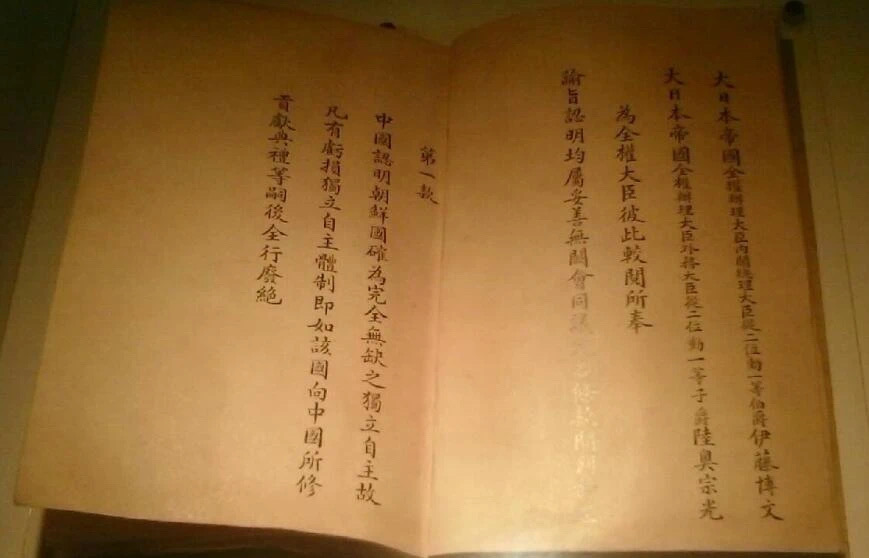 大日本帝國全權辦理大臣內閣總理大臣從二位勳一等伯爵伊藤博文
大日本帝國全權辦理大臣外務大臣從二位勳一等子爵陸奥宗光
為全權大臣彼此較閱所奉
諭旨認明均屬妥善無闕會同議條款開列
第一款
中國認明朝鮮國確為完全無缺之獨立自主故
凡有虧損獨立自主體制即如該國向中國所修
貢獻典禮等嗣後全行廢絕